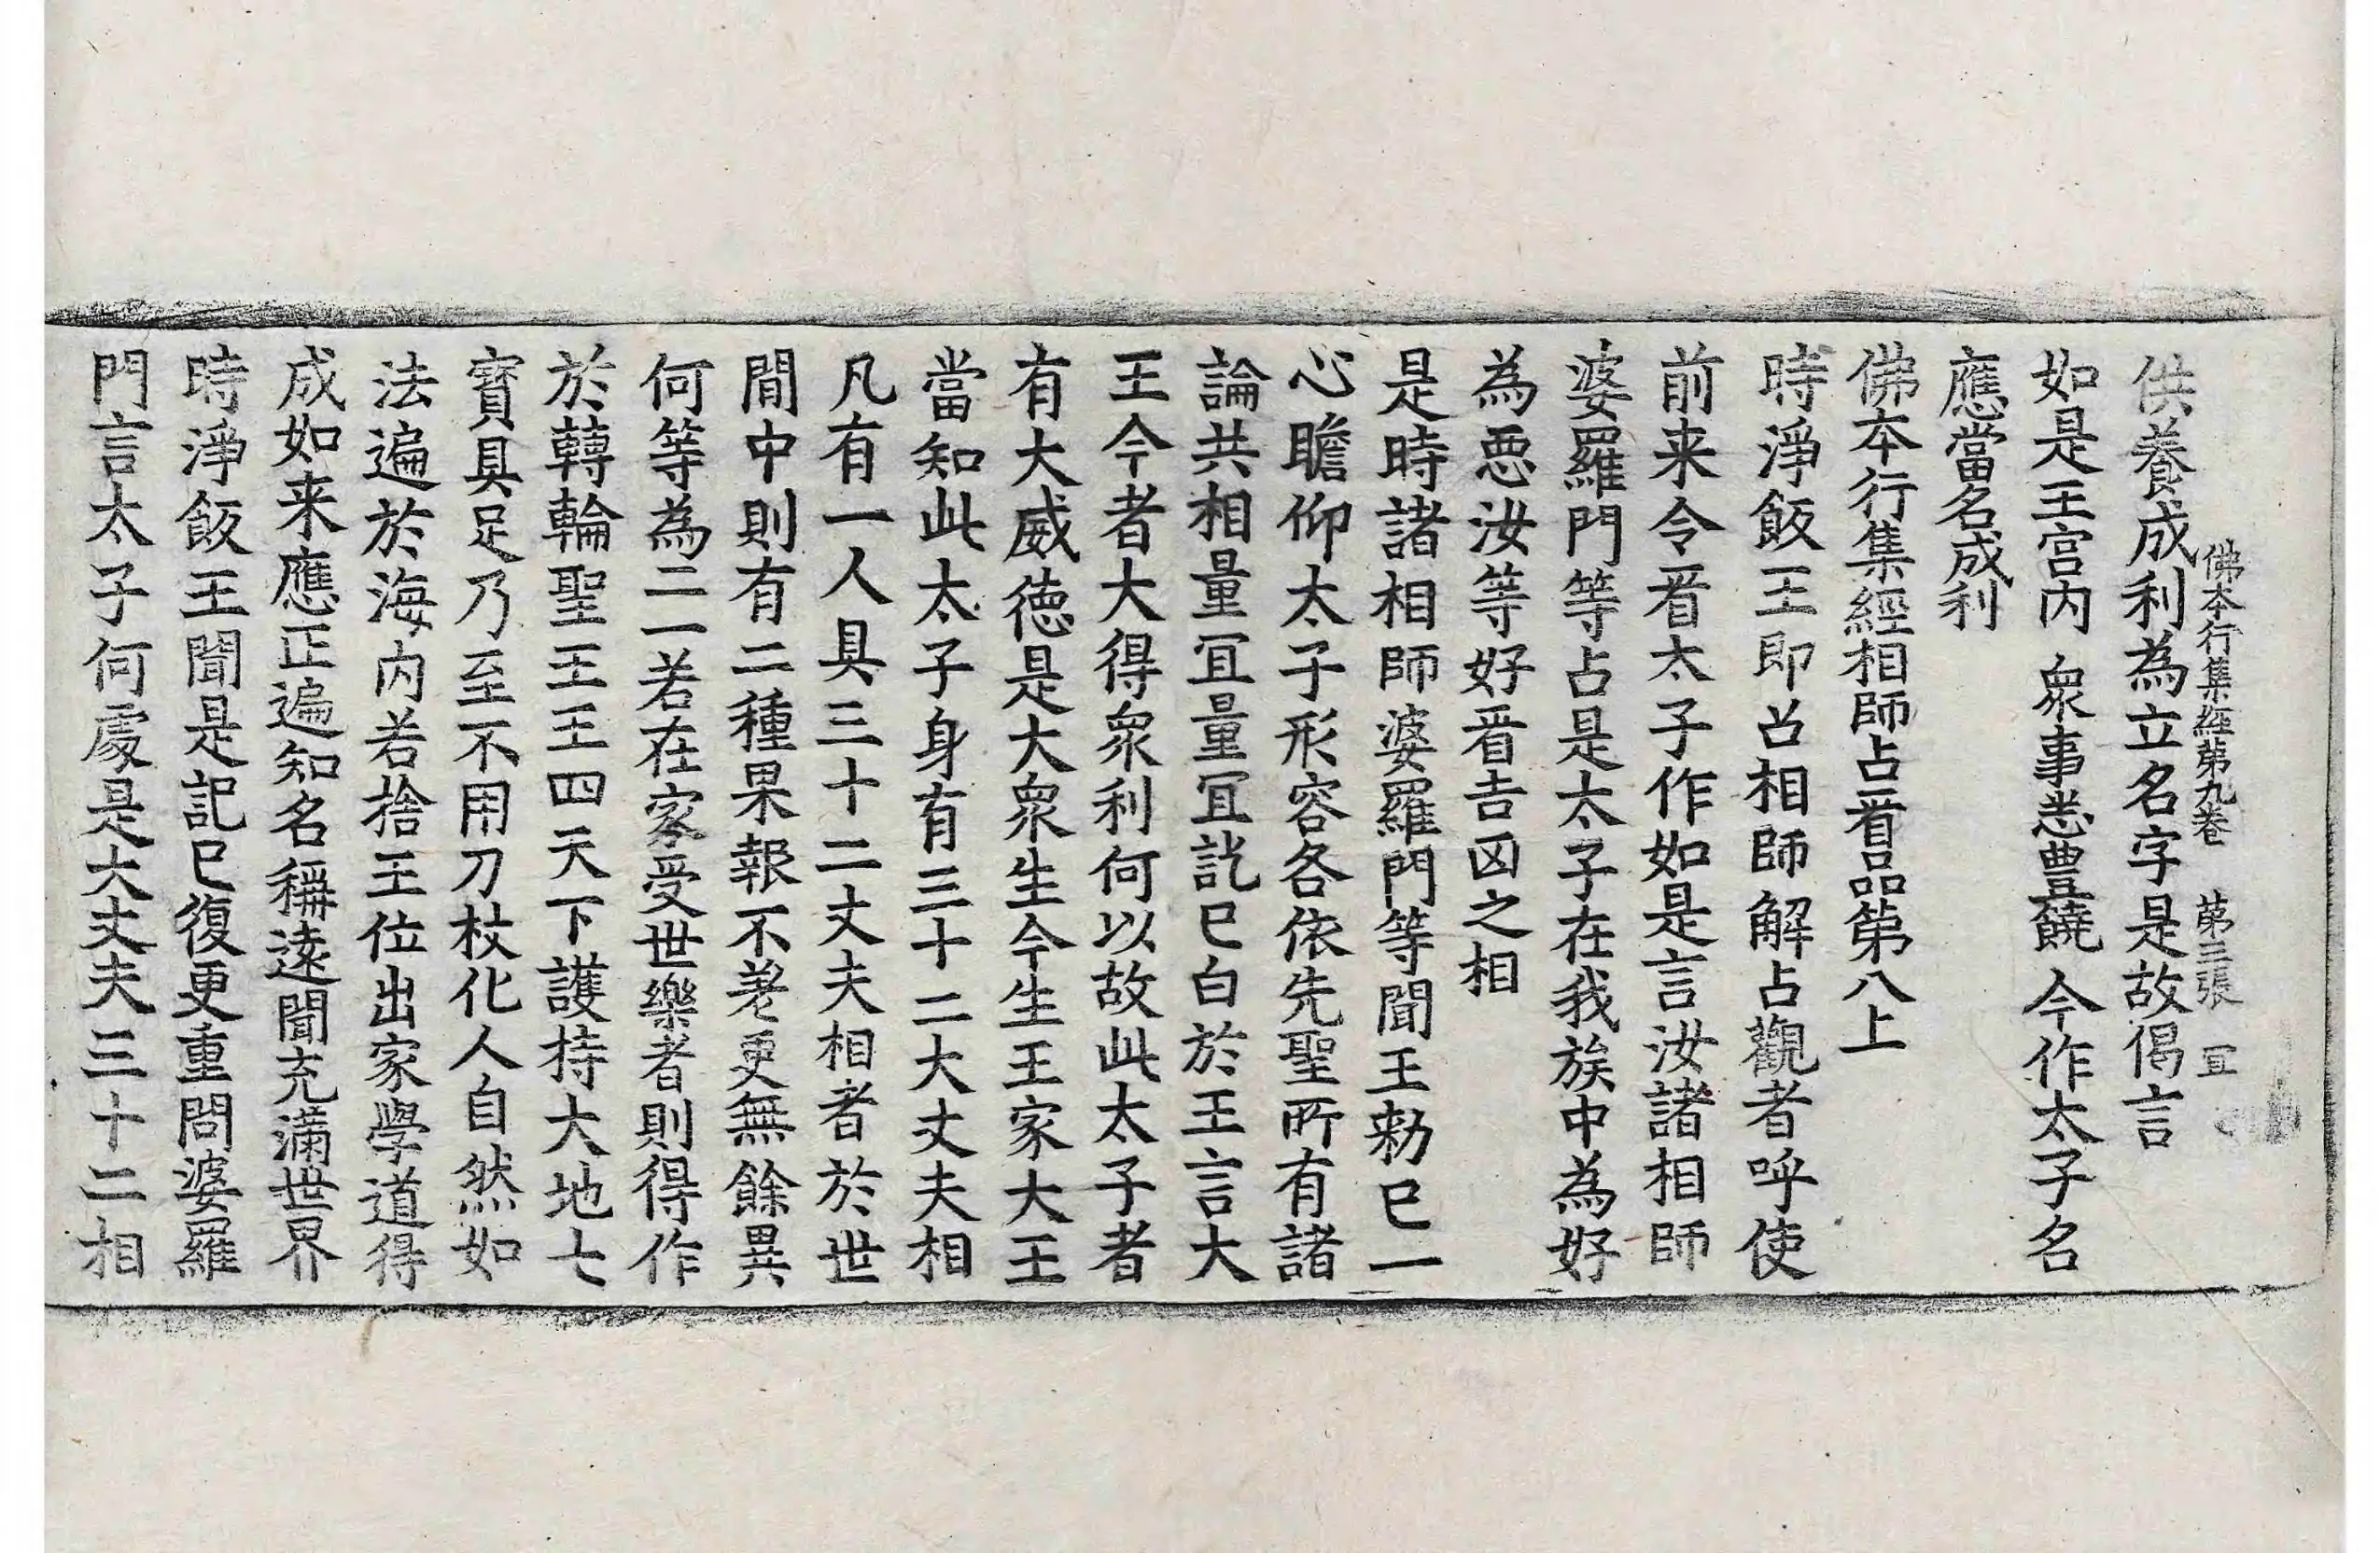 佛本行集經第九卷 第三張 冝
供養成利為立名字是故偈言
如是王宫内 衆事悉豊饒 今作太子名
應當名成利
佛本行集經相師占㸔品第八上
時淨飯王即占相師解占觀者呼使
前来令㸔太子作如是言汝諸相師
婆羅門等占是太子在我族中為好
為惡汝等好㸔吉凶之相
是時諸相師婆羅門等聞王勑已一
心瞻仰太子形容各依先聖所有諸
論共相量冝量冝訖已白於王言大
王今者大得衆利何以故此太子者
有大威德是大衆生今生王家大王
當知此太子身有三十二大丈夫相
凡有一人具三十二丈夫相者於世
間中則有二種果報不差更無餘異
何等為二一若在家受世樂者則得作
於轉輪聖王王四天下護持大地七
寳具足乃至不用刀杖化人自然如
法遍於海内若捨王位出家學道得
成如来應正遍知名稱遠聞充滿世界
時淨飯王聞是記已復更重問婆羅
門言太子何處是大丈夫三十二相